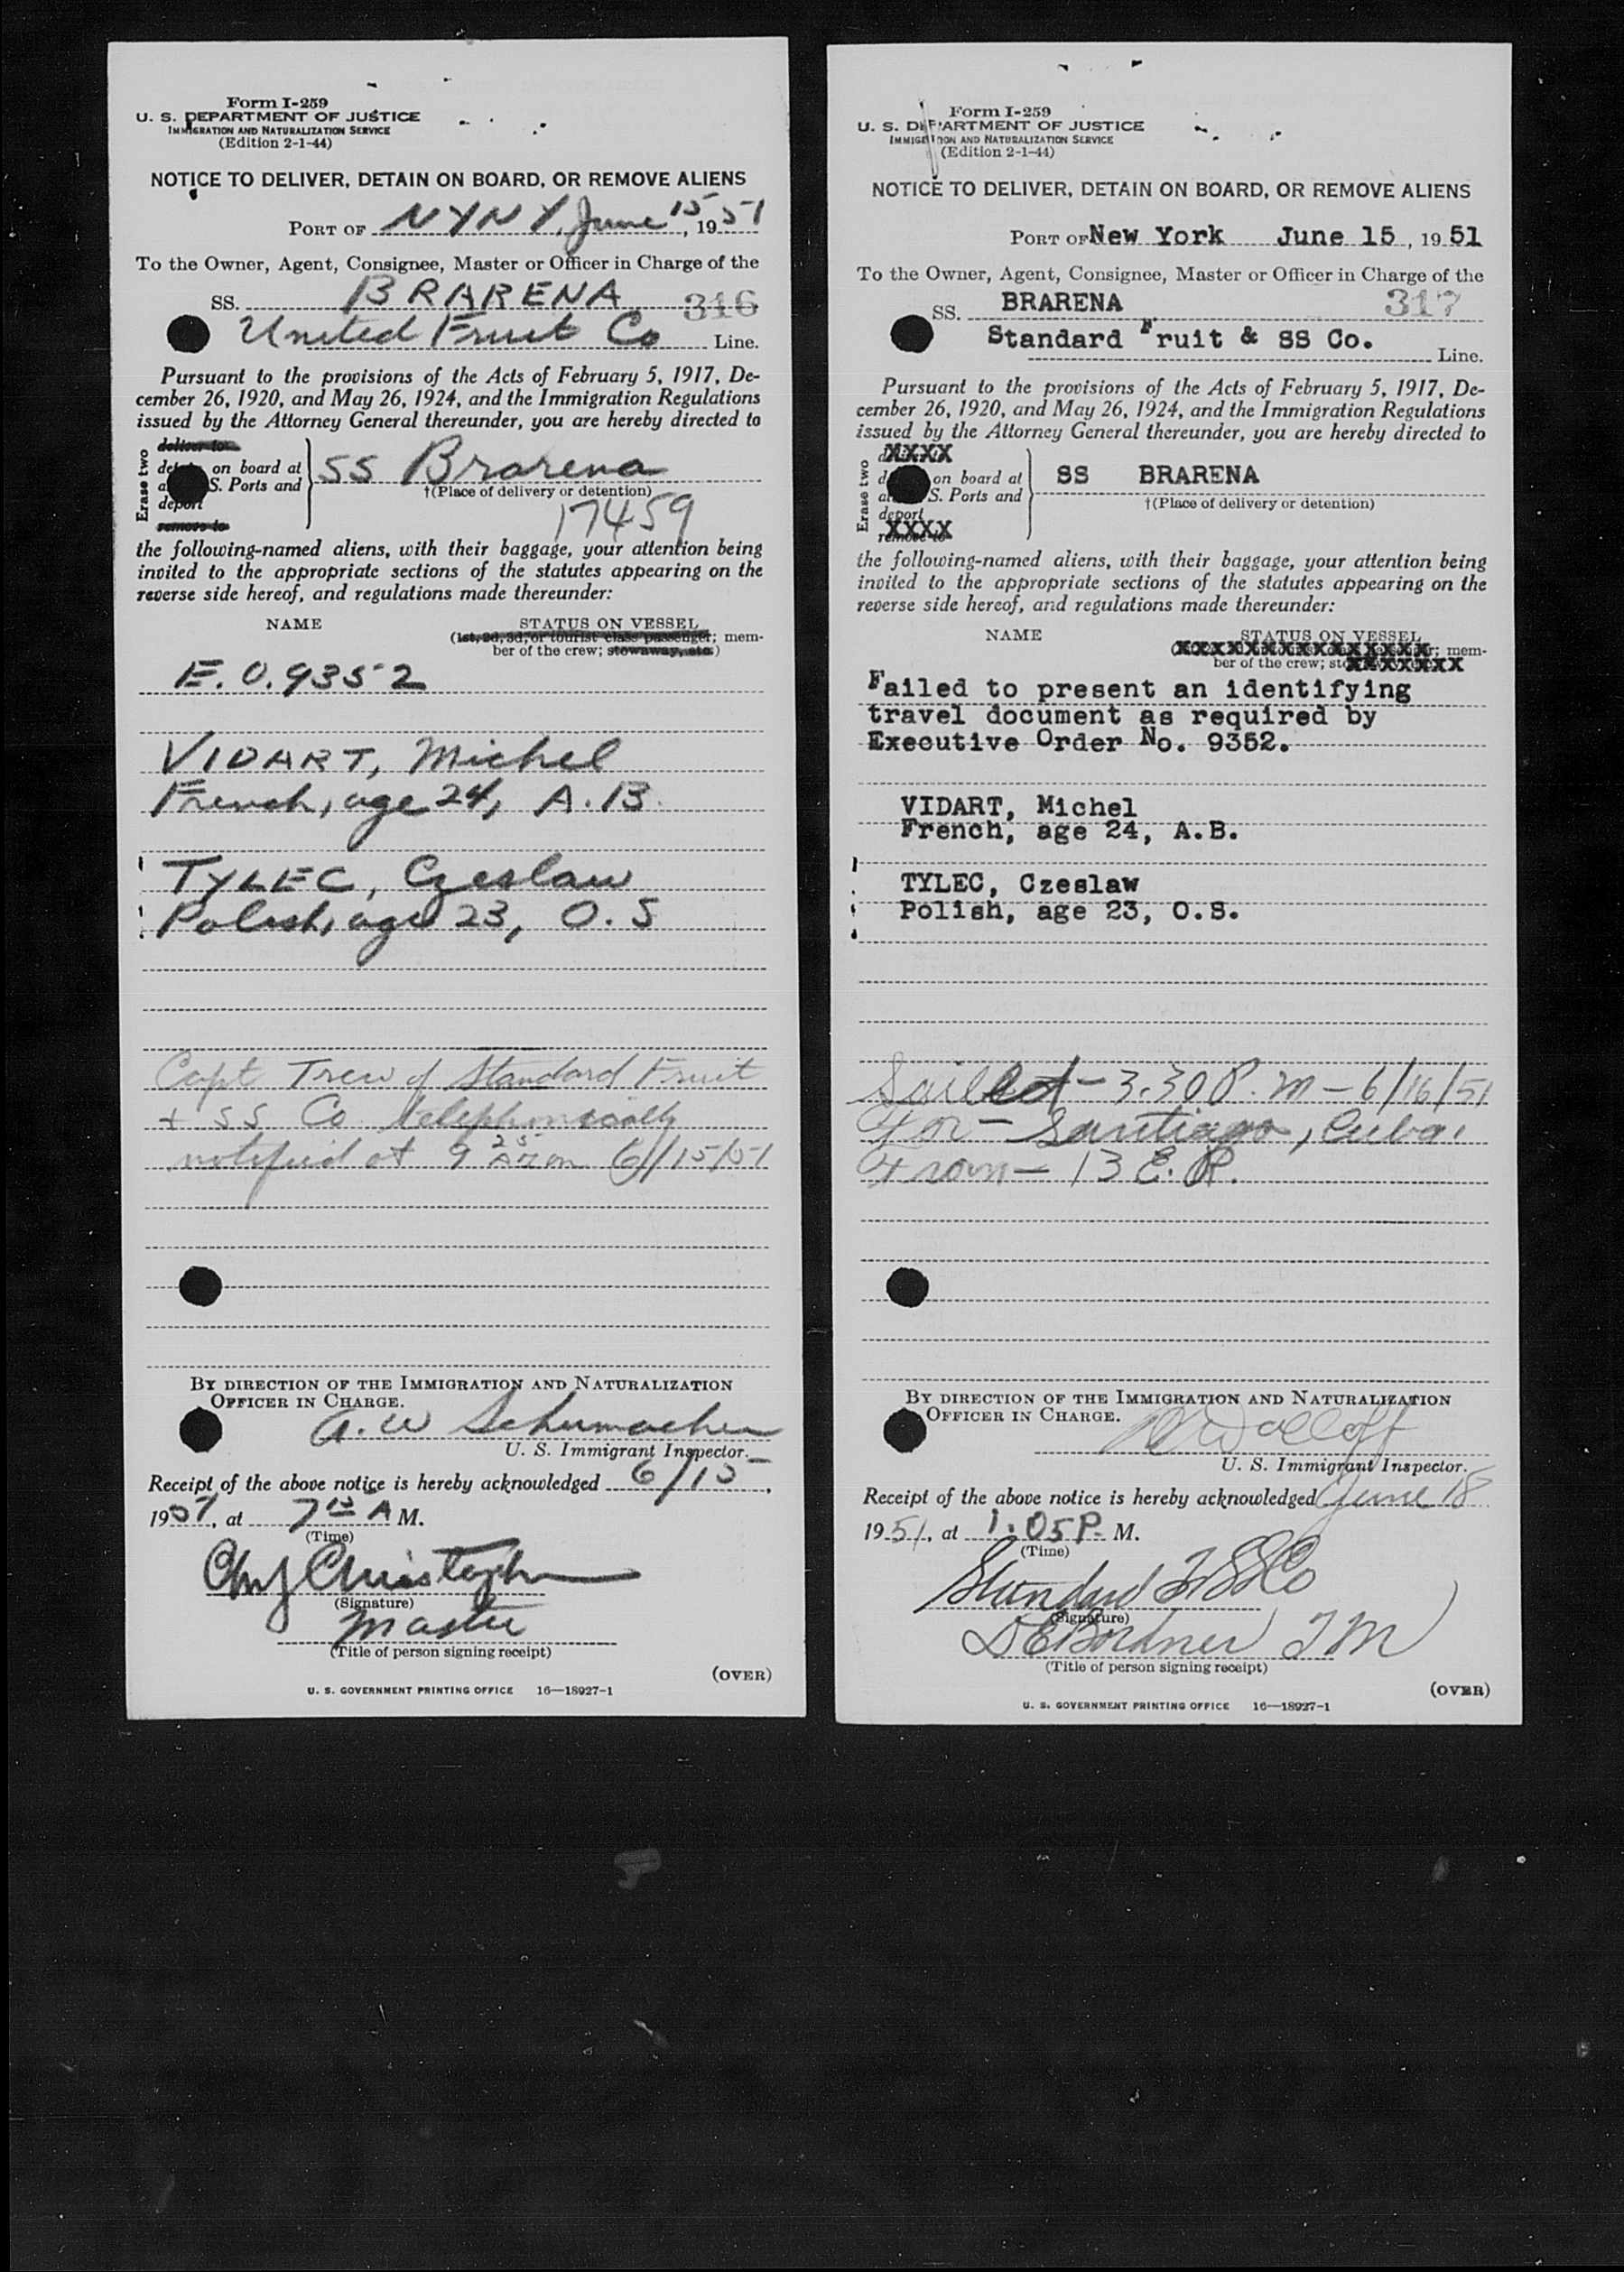 Form I-259
U. S. DEPARTMENT OF JUSTICE
IMMIGRATION AND NATURALIZATION SERVICE
(Edition 2-1-44)
NOTICE TO DELIVER, DETAIN ON BOARD, OR REMOVE ALIENS
PORT OF NYNY, June 15, 1951
To the Owner, Agent, Consignee, Master or Officer in Charge of the
SS. BRARENA 316
United Fruit Co Line.
Pursuant to the provisions of the Acts of February 5, 1917, De-
cember 26, 1920, and May 26, 1924, and the Immigration Regulations
issued by the Attorney General thereunder, you are hereby directed to
Erase two
deliver to
on board at
S. Ports and
deport
remove to
SS Brarena
†(Place of delivery or detention)
17459
the following-named aliens, with their baggage, your attention being
invited to the appropriate sections of the statutes appearing on the
reverse side hereof, and regulations made thereunder:
NAME STATUS ON VESSEL
(1st, 2d, 3d, or tourist class passenger; mem-
ber of the crew; stowaway, etc.)
E.O. 9352
VIDART, Michel
French, age 24, A.B.
TYLEC, Czeslaw
Polish, age 23, O.S
Capt Trew of Standard Fruit
+ SS Co telephonically
notified at 9 25 am 6/15/51
BY DIRECTION OF THE IMMIGRATION AND NATURALIZATION
OFFICER IN CHARGE.
A. W Schumacher
U. S. Immigrant Inspector.
Receipt of the above notice is hereby acknowledged 6/15,
1951, at 7 15 A M.
(Time)
Christoph
(Signature)
Master
(Title of person signing receipt)
(OVER)
U. S. GOVERNMENT PRINTING OFFICE 16—18927-1
Form I-259
U. S. DEPARTMENT OF JUSTICE
IMMIGRATION AND NATURALIZATION SERVICE
(Edition 2-1-44)
NOTICE TO DELIVER, DETAIN ON BOARD, OR REMOVE ALIENS
PORT OF New York June 15, 1951
To the Owner, Agent, Consignee, Master or Officer in Charge of the
SS. BRARENA 317
Standard Fruit & SS Co. Line.
Pursuant to the provisions of the Acts of February 5, 1917, De-
cember 26, 1920, and May 26, 1924, and the Immigration Regulations
issued by the Attorney General thereunder, you are hereby directed to
Erase two
XXXX
on board at
S. Ports and
deport
XXXX
remove to
SS BRARENA
†(Place of delivery or detention)
the following-named aliens, with their baggage, your attention being
invited to the appropriate sections of the statutes appearing on the
reverse side hereof, and regulations made thereunder:
NAME STATUS ON VESSEL
XXXXXXXXXXXXXXX; mem-
ber of the crew; XXXXXXX
Failed to present an identifying
travel document as required by
Executive Order No. 9352.
VIDART, Michel
French, age 24, A.B.
TYLEC, Czeslaw
Polish, age 23, O.S.
Sailed - 3.30 P.M - 6/16/51
For - Santiago, Cuba.
From - 13 E.R.
BY DIRECTION OF THE IMMIGRATION AND NATURALIZATION
OFFICER IN CHARGE.
U. S. Immigrant Inspector.
Receipt of the above notice is hereby acknowledged June 18
1951, at 1.05 P. M.
(Time)
Standard F SS Co
(Signature)
D E Bordner T M
(Title of person signing receipt)
(OVER)
U. S. GOVERNMENT PRINTING OFFICE 16—18927-1